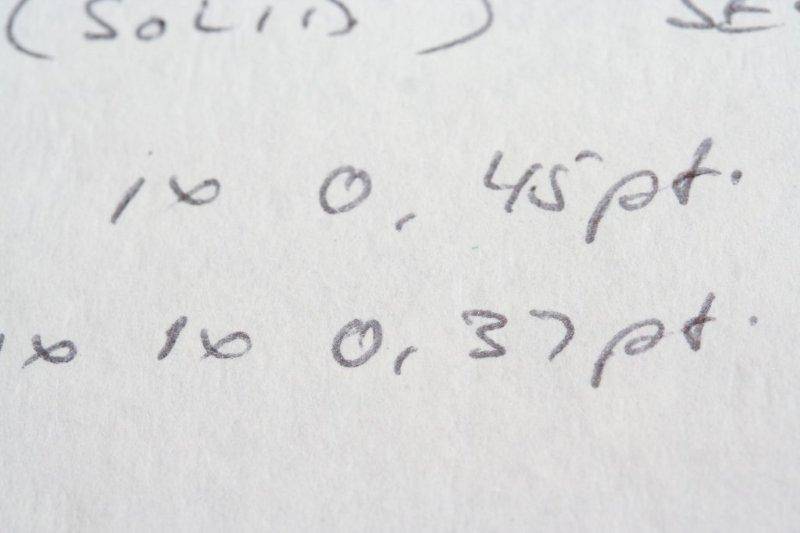 (SOLID) SE
1x 0,45pt.
1x 1x 0,37pt.